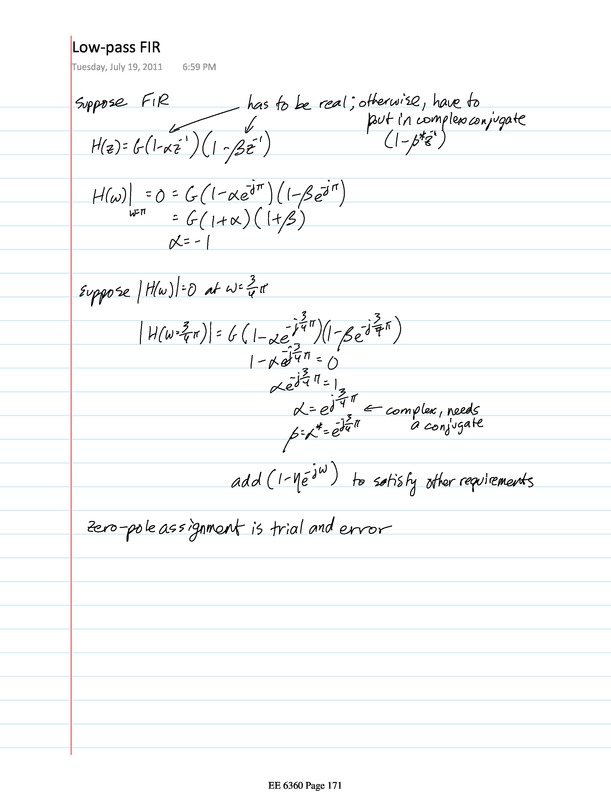 Low-pass FIR
Tuesday, July 19, 2011 6:59 PM
Suppose FIR
has to be real; otherwise, have to
put in complex conjugate
H(z) = G(1-αz⁻¹)(1-βz⁻¹)
(1-β*z⁻¹)
H(ω)|ω=π = 0 = G(1-αe^-jπ)(1-βe^-jπ)
= G(1+α)(1+β)
α = -1
Suppose |H(ω)|=0 at ω=3/4π
|H(ω=3/4π)| = G(1-αe^-j3/4π)(1-βe^-j3/4π)
1-αe^-j3/4π = 0
αe^-j3/4π = 1
α = e^j3/4π ← complex, needs
a conjugate
β=α*=e^-j3/4π
add (1-ηe^-jω) to satisfy other requirements
Zero-pole assignment is trial and error
EE 6360 Page 171